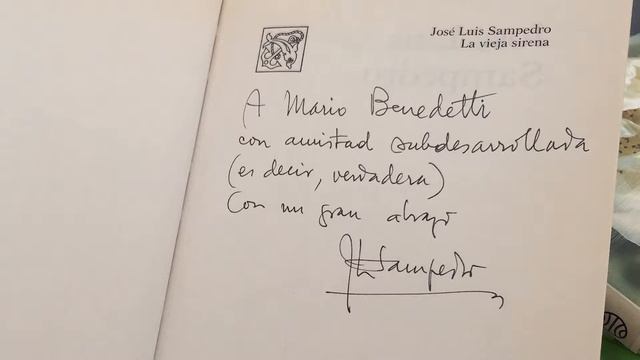 José Luis Sampedro
La vieja sirena
A Mario Benedetti
con amistad subdesarrollada
(es decir, verdadera)
Con un gran abrazo
JLSampedro